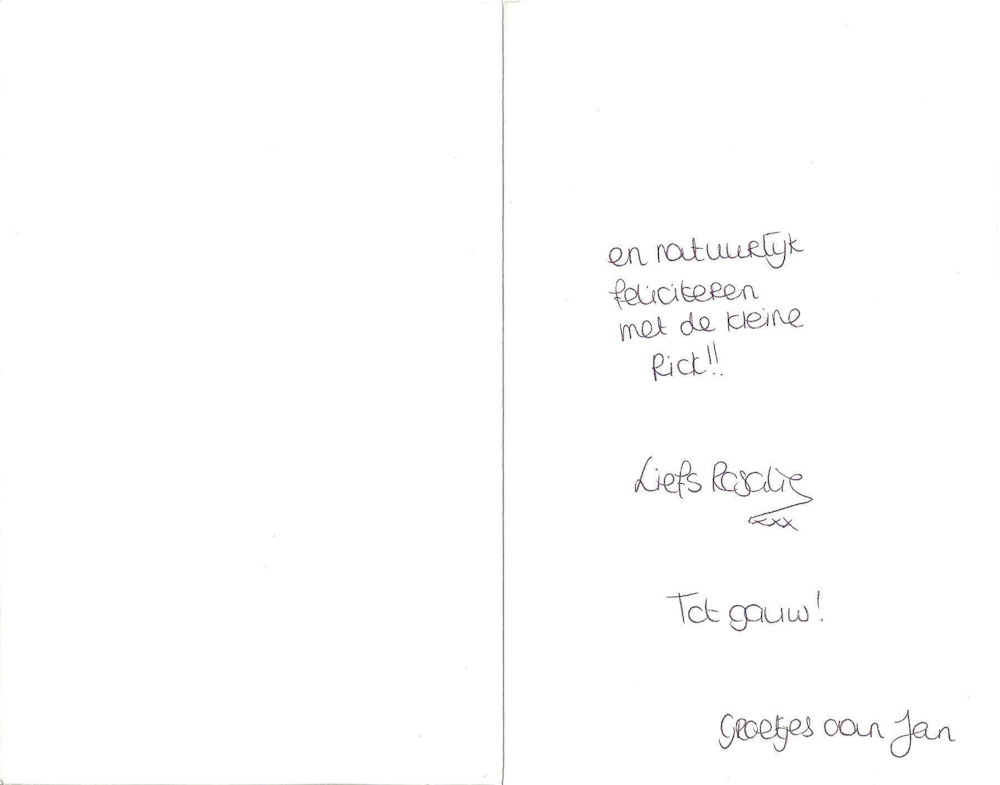 en natuurlijk
feliciteren
met de kleine
Rick!!
Liefs Rosalie
xxx
Tot gauw!
Groetjes aan Jan